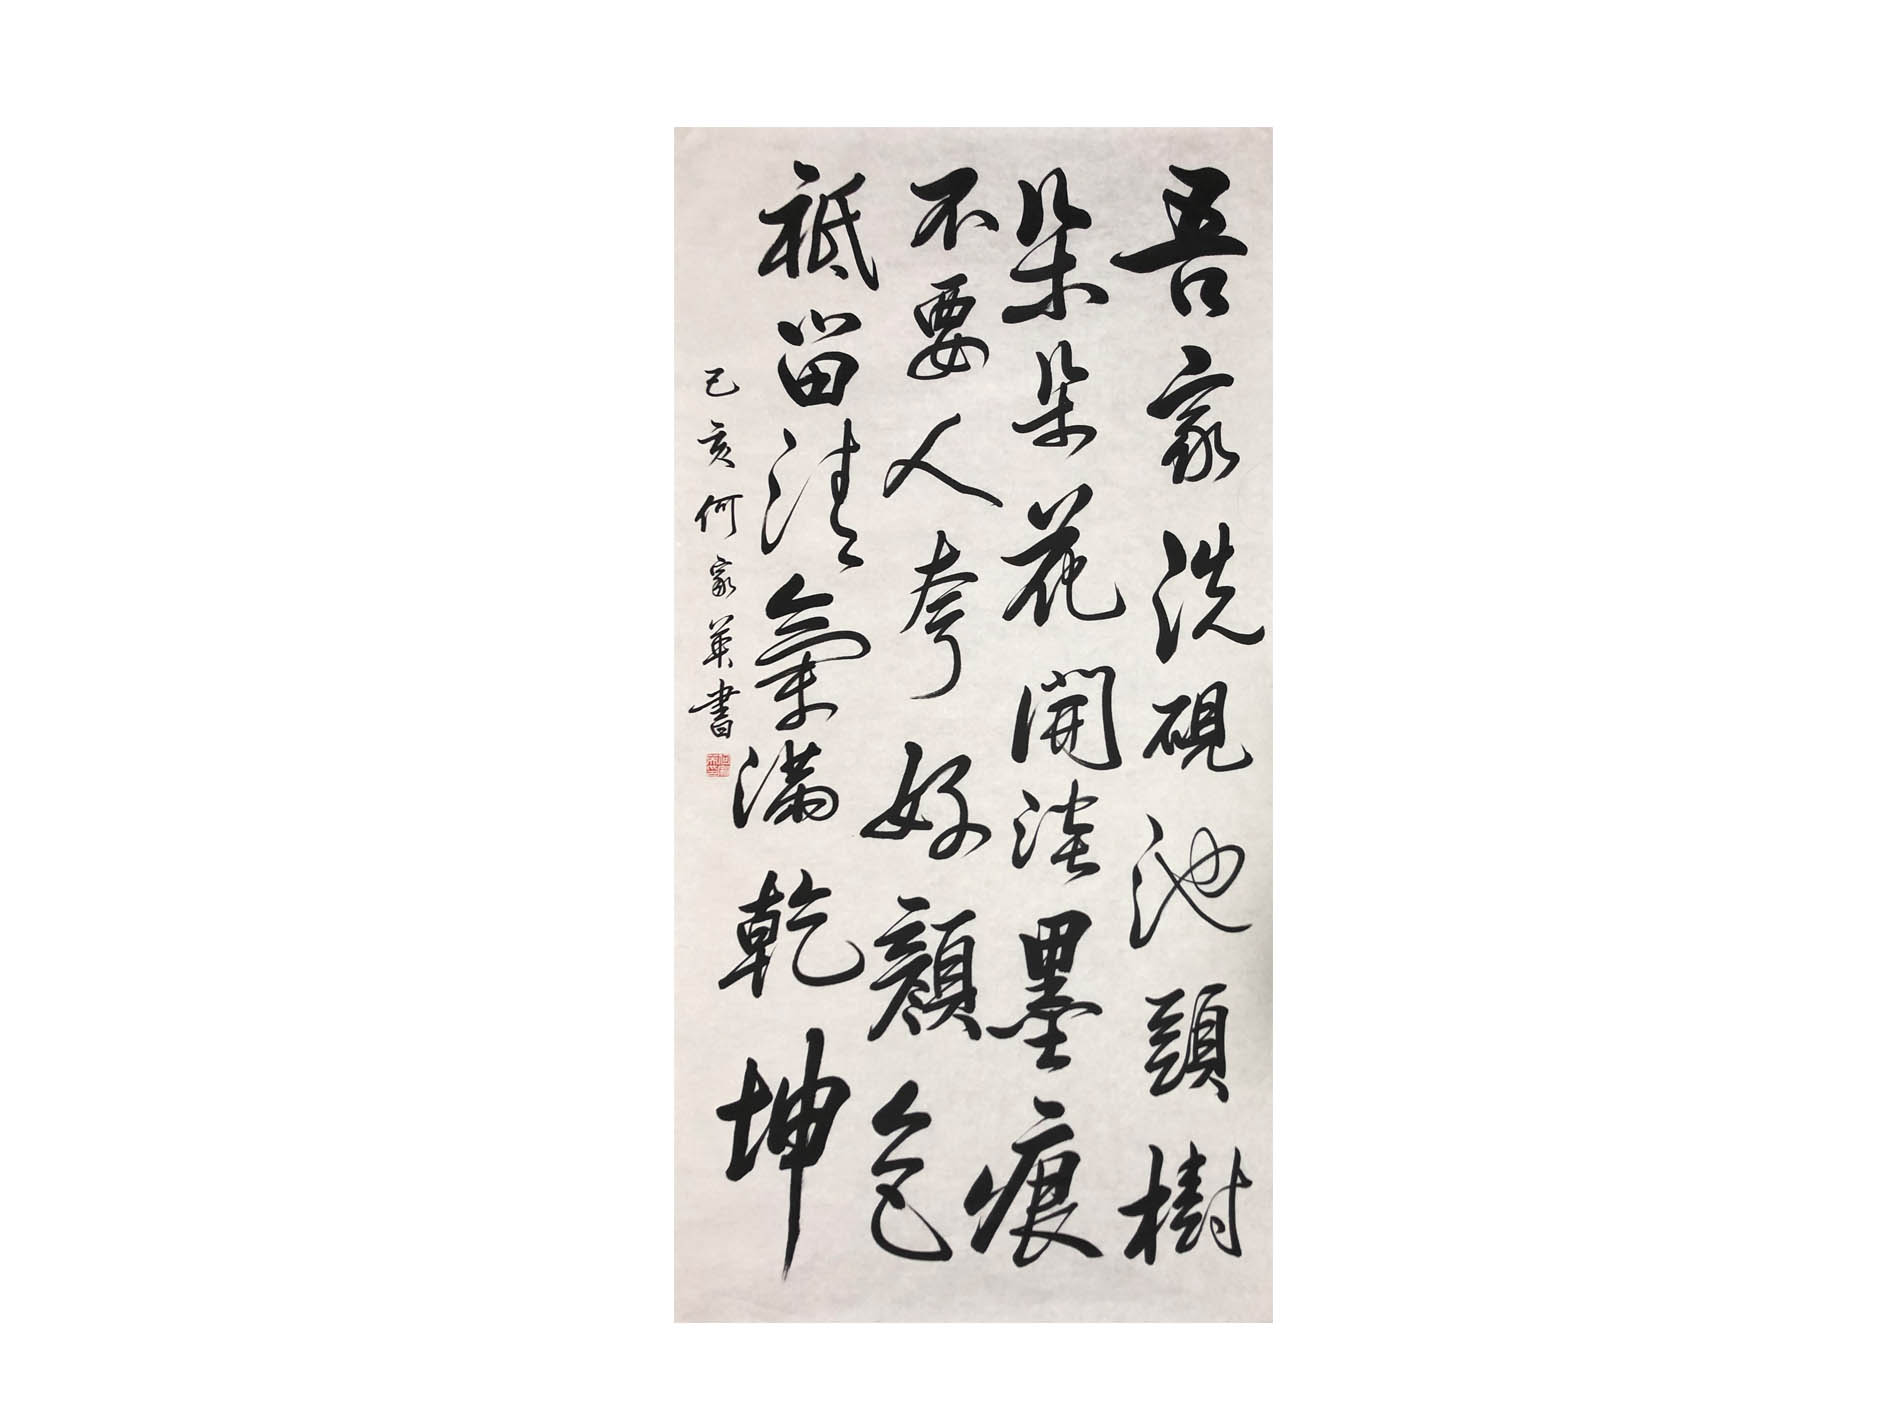 吾家洗硯池頭樹
朵朵花開淡墨痕
不要人夸好顏色
祗留清氣滿乾坤
己亥何家英書